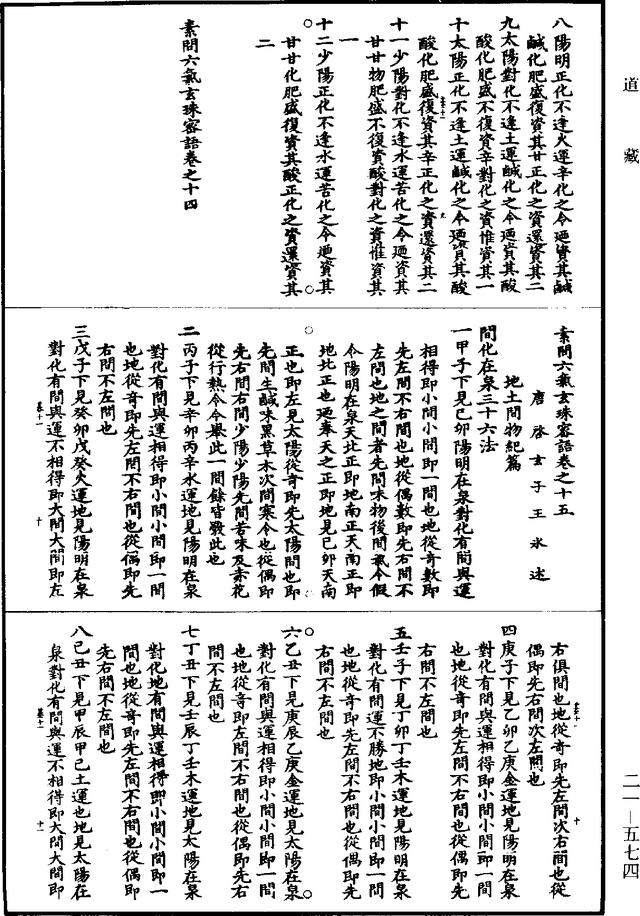 道藏
八陽明正化不逢火運辛化之令廼資其鹹
鹹化肥盛復資其甘正化之資還資其二
九太陽對化不逢土運鹹化之令廼資其酸
酸化肥盛不復資辛對化之資惟資其一
十太陽正化不逢土運鹹化之令廼資其酸
酸化肥盛復資其辛正化之資還資其二
十一少陽對化不逢水運苦化之令廼資其
甘甘物肥盛不復資酸對化之資惟資其
一
十二少陽正化不逢水運苦化之令廼資其
甘甘化肥盛復資其酸正化之資還資其
二
素問六氣玄珠密語卷之十四
素問六氣玄珠密語卷之十五
唐啓玄子王冰述
地土間物紀篇
間化在泉三十六法
一甲子下見己卯陽明在泉對化有間與運
相得即小間小間即一間也地從奇數即
先左間不右間也地從偶數即先右間不
左間也地之間者先間味物後間氣令假
令陽明在泉天北正即地南正天南正即
地北正也廼奉天之正即地見己卯天南
正也即左見太陽從奇即先太陽間也即
先間生鹹味黑草木次間寒令也從偶即
先右間右間少陽少陽先間苦味及赤花
從行熱令令舉此一間餘皆發此也
二丙子下見辛卯丙辛水運地見陽明在泉
對化有間與運相得即小間小間即一間
也地從奇先左間不右間也從偶即先
右間不左間也
三戊子下見癸卯戊癸火運地見陽明在泉
對化有間與運不相得即大間大間即左
右俱間也地從奇即先左間次右間也從
偶即先右間次左間也
四庚子下見乙卯乙庚金運地見陽明在泉
對化有間與運相得即小間小間即一間
也地從奇即先左間不右間也從偶即先
右間不左間也
五壬子下見丁卯丁壬木運地見陽明在泉
對化有間運不勝地即小間小間即一間
也地從奇即先左間不右間也從偶即先
右間不左間也
六乙丑下見庚辰乙庚金運地見太陽在泉
對化有間與運相得即小間小間即一間
也地從奇即左間不右間也從偶即先右
間不左間也
七丁丑下見壬辰丁壬木運地見太陽在泉
對化地有間與運相得即小間小間即一
間也地從奇即先左間不右間也從偶即
先右間不左間也
八己丑下見甲辰甲己土運也地見太陽在
泉對化有間與運不相得即大間大間即
二一—五七四